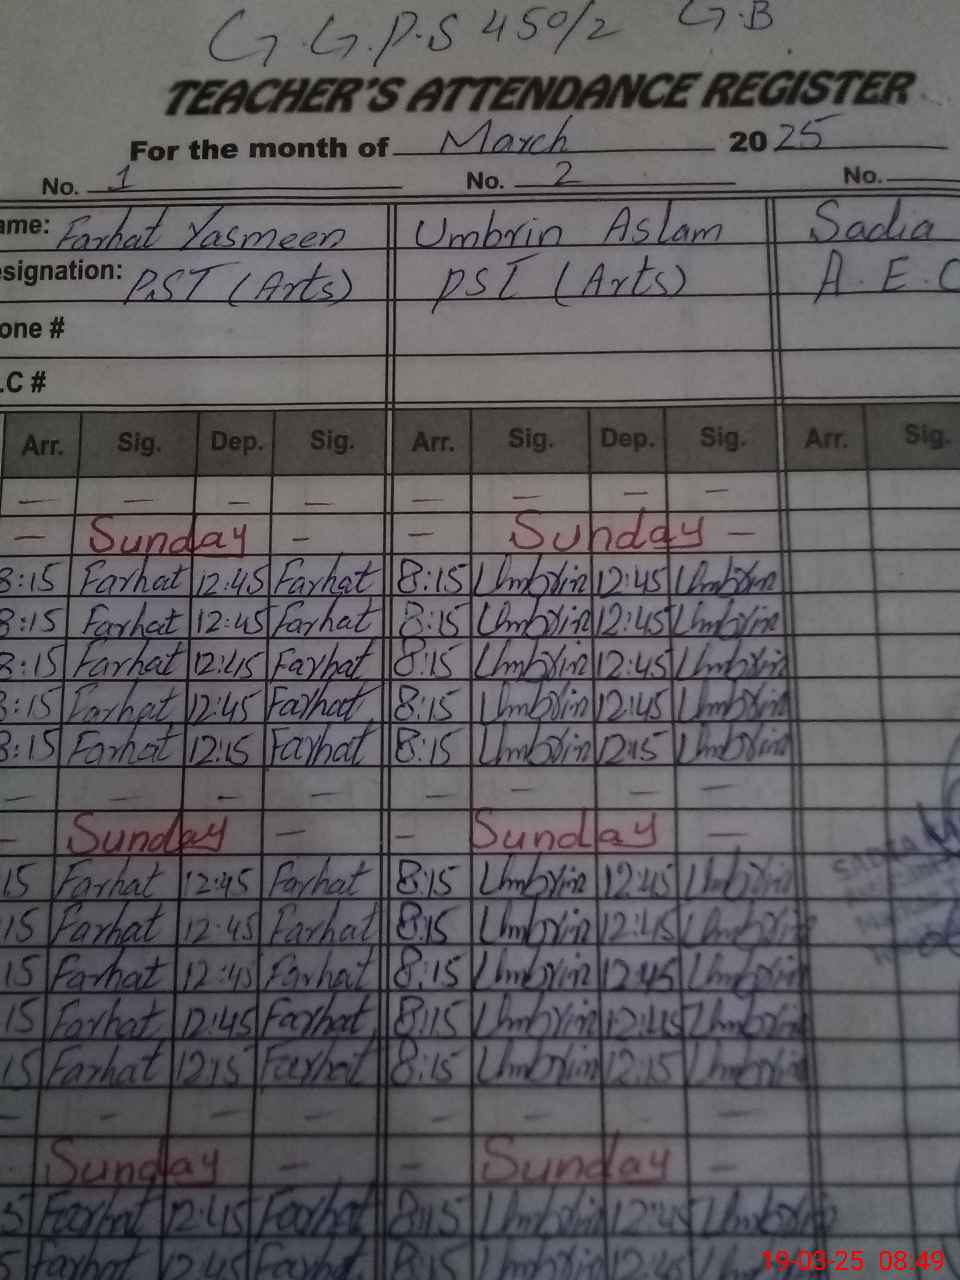 G.G.P.S 450/2 G.B
TEACHER'S ATTENDANCE REGISTER
For the month of March 2025
No. 1 No. 2 No.
ame: Farhat Yasmeen Umbrin Aslam Sadia
esignation: P.ST (Arts) PST (Arts) A.E.C
one #
.C #
Arr. Sig. Dep. Sig. Arr. Sig. Dep. Sig. Arr. Sig.
— — — — — — — —
— Sunday - — Sunday —
8:15 Farhat 12:45 Farhat 8:15 Umbrin 12:45 Umbrin
8:15 Farhat 12:45 Farhat 8:15 Umbrin 12:45 Umbrin
8:15 Farhat 12:45 Farhat 8:15 Umbrin 12:45 Umbrin
8:15 Farhat 12:45 Farhat 8:15 Umbrin 12:45 Umbrin
8:15 Farhat 12:15 Farhat 8:15 Umbrin 12:15 Umbrin
— — — — — — — —
- Sunday — - Sunday —
15 Farhat 12:45 Farhat 8:15 Umbrin 12:45 Umbrin
SADIA
15 Farhat 12:45 Farhat 8:15 Umbrin 12:45 Umbrin
15 Farhat 12:45 Farhat 8:15 Umbrin 12:45 Umbrin
15 Farhat 12:45 Farhat 8:15 Umbrin 12:45 Umbrin
15 Farhat 12:15 Farhat 8:15 Umbrin 12:15 Umbrin
- — — — — — — —
Sunday — - Sunday -
5 Farhat 12:45 Farhat 8:15 Umbrin 12:45 Umbrin
5 Farhat 12:45 Farhat 8:15 Umbrin 12:45
19-03-25 08:49